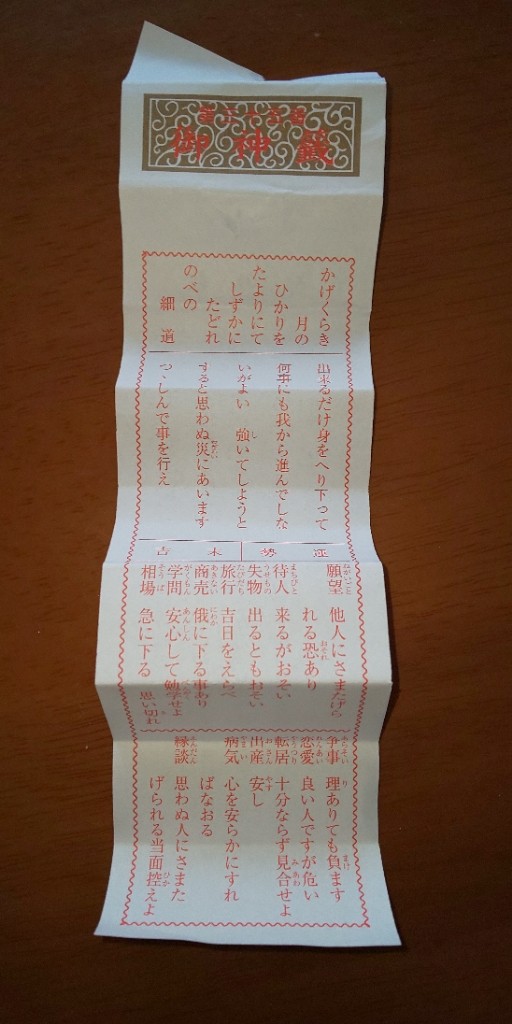 御神籤
かげくらき
月の
ひかりを
たよりにて
しずかに
たどれ
のべの
細道
出来るだけ身をへり下って
何事にも我から進んでしな
いがよい 強いてしようと
すると思わぬ災にあいます
つゝしんで事を行え
運勢 末吉
願望 他人にさまたげら
れる恐あり
待人 来るがおそい
失物 出るともおそい
旅行 吉日をえらべ
商売 俄に下る事あり
学問 安心して勉学せよ
相場 急に下る 思い切れ
争事 理ありても負ます
恋愛 良い人ですが危い
転居 十分ならず見合せよ
出産 安し
病気 心を安らかにすれ
ばなおる
縁談 思わぬ人にさまた
げられる当面控えよ